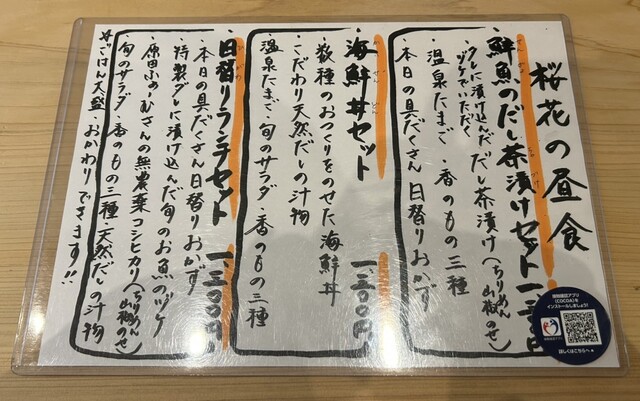 桜花の昼食
鮮魚のだし茶漬けセット 一、三〇〇円
タレに漬け込んだだし茶漬け(ちりめん山椒のせ)
づけていただく
温泉たまご 香のもの三種
本日の具だくさん日替りおかず
海鮮丼セット 一、三〇〇円
数種のおつくりをのせた海鮮丼
こだわり天然だしの汁物
温泉たまご・旬のサラダ 香のもの三種
日替りランチセット 一、三〇〇円
本日の具だくさん日替りおかず
特製ダレに漬け込んだ旬のお魚のヅケ
原田ふぁ〜むさんの無農薬コシヒカリ(ちりめん山椒のせ)
旬のサラダ 香のもの三種・天然だしの汁物
#ごはん大盛、おかわりできます!!
接触確認アプリ
(COCOA)を
インストールしましょう!
詳しくはこちらへ